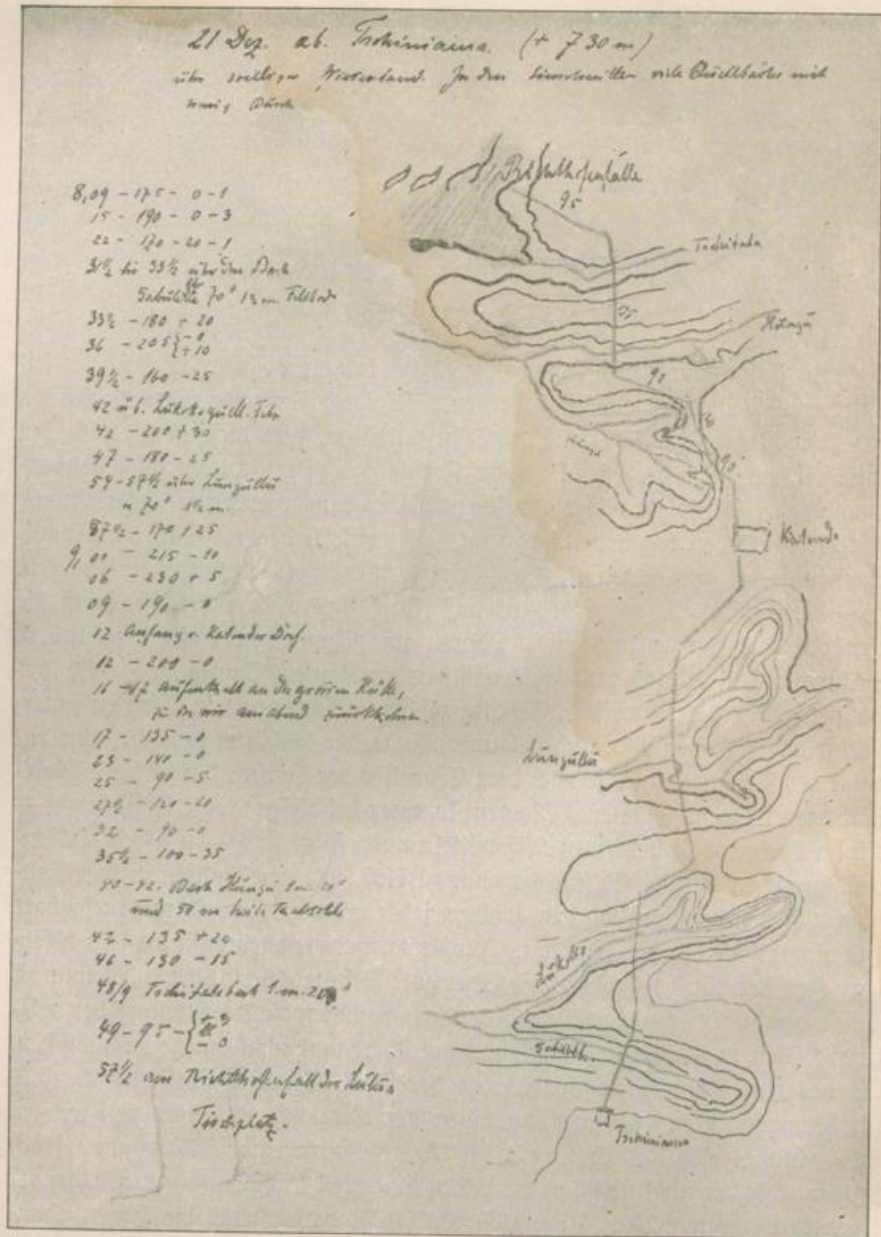 21 Dez. ab. Tschiniama. (+ 730 m)
über welliges Wiesenland. In den viele Quellbäche mit
wenig Busch
8,09 - 175 - 0 - 1
15 - 190 - 0 - 3
22 - 170 - 20 - 1
31½ bis 33½ über den Bach
70° 1½ m Felsbod
33½ - 180 + 20
36 - 205 { - 0
+ 10
39½ - 160 - 25
42 üb.
42 - 200 + 30
47 - 180 - 25
54 - 57½ über Lungullu
70° 1½ m.
57½ - 170 + 25
9,00 - 215 - 10
06 - 230 + 5
09 - 190 - 0
12 Anfang v. Katende Dorf.
12 - 200 - 0
16 - 17 Aufenthalt an der grossen Hütte,
zu der wir am Abend zurückkehren.
17 - 135 - 0
23 - 140 - 0
25 - 90 - 5
27½ - 120 - 20
32 - 90 - 0
35½ - 100 - 35
40-42. Bach Hungu 1 m 20°
und 50 m breite Thalsohle
42 - 135 + 20
46 - 130 - 15
48/9 1 m 20
49 - 95 - {
57½ am Richthofenfall des Lulua
Tischplatz.
Richthofenfälle
95
Hungu
95
90
90
Katende
Lungullu
Tschiniama